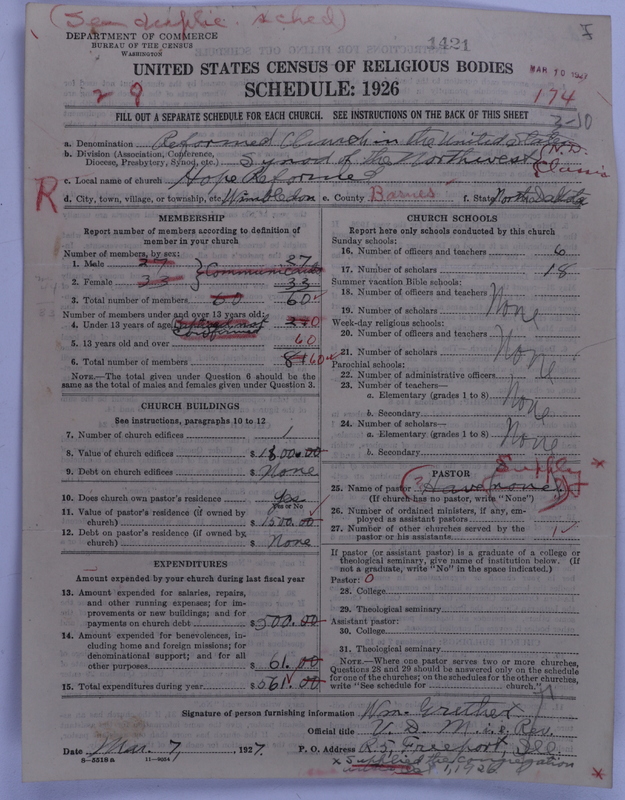 (See duplic. sched)
DEPARTMENT OF COMMERCE
BUREAU OF THE CENSUS
WASHINGTON
1421
UNITED STATES CENSUS OF RELIGIOUS BODIES
MAR 10 1927
SCHEDULE: 1926
174
FILL OUT A SEPARATE SCHEDULE FOR EACH CHURCH. SEE INSTRUCTIONS ON THE BACK OF THIS SHEET
3-10
a. Denomination Reformed Church in the United States
b. Division (Association, Conference, Diocese, Presbytery, Synod, etc.) Synod of the Northwest (N.D. Classis
c. Local name of church Hope Reformed
R
d. City, town, village, or township, etc. Wimbledon e. County Barnes f. State North Dakota
MEMBERSHIP
Report number of members according to definition of
member in your church
Number of members, by sex:
1. Male 27 } Communicants 27
2. Female 33 33
3. Total number of members 60 60
Number of members under and over 13 years old:
4. Under 13 years of age 0
5. 13 years old and over 60
6. Total number of members 60
NOTE.—The total given under Question 6 should be the
same as the total of males and females given under Question 3.
CHURCH BUILDINGS
See instructions, paragraphs 10 to 12
7. Number of church edifices 1
8. Value of church edifices $ 1800.00
9. Debt on church edifices $ None
10. Does church own pastor's residence Yes
Yes or No
11. Value of pastor's residence (if owned by
church) $ 1500.00
12. Debt on pastor's residence (if owned by
church) $ None
EXPENDITURES
Amount expended by your church during last fiscal year
13. Amount expended for salaries, repairs,
and other running expenses; for im-
provements or new buildings; and for
payments on church debt $ 500.00
14. Amount expended for benevolences, in-
cluding home and foreign missions; for
denominational support; and for all
other purposes $ 61.00
15. Total expenditures during year $ 561.00
CHURCH SCHOOLS
Report here only schools conducted by this church
Sunday schools:
16. Number of officers and teachers 6
17. Number of scholars 18
Summer vacation Bible schools:
18. Number of officers and teachers
19. Number of scholars None
Week-day religious schools:
20. Number of officers and teachers
21. Number of scholars None
Parochial schools:
22. Number of administrative officers
23. Number of teachers—
a. Elementary (grades 1 to 8) None
b. Secondary
24. Number of scholars—
a. Elementary (grades 1 to 8) None
b. Secondary
PASTOR Supply
25. Name of pastor Have none
(If church has no pastor, write "None")
26. Number of ordained ministers, if any, em-
ployed as assistant pastors
27. Number of other churches served by the
pastor or his assistants 1
If pastor (or assistant pastor) is a graduate of a college or
theological seminary, give name of institution below. (If
not a graduate, write "No" in the space indicated.)
Pastor: 0
28. College
29. Theological seminary
Assistant pastor:
30. College
31. Theological seminary
NOTE.—Where one pastor serves two or more churches,
Questions 28 and 29 should be answered only on the schedule
for one of the churches; on the schedules for the other churches,
write "See schedule for church."
Signature of person furnishing information Wm. Grether
Official title V. D. M. i.e. Rev.
Date Mar. 7, 1927. P. O. Address R.5, Freeport, Ill.
8-5518a 11-9054
x Supplied the congregation
1, 1926